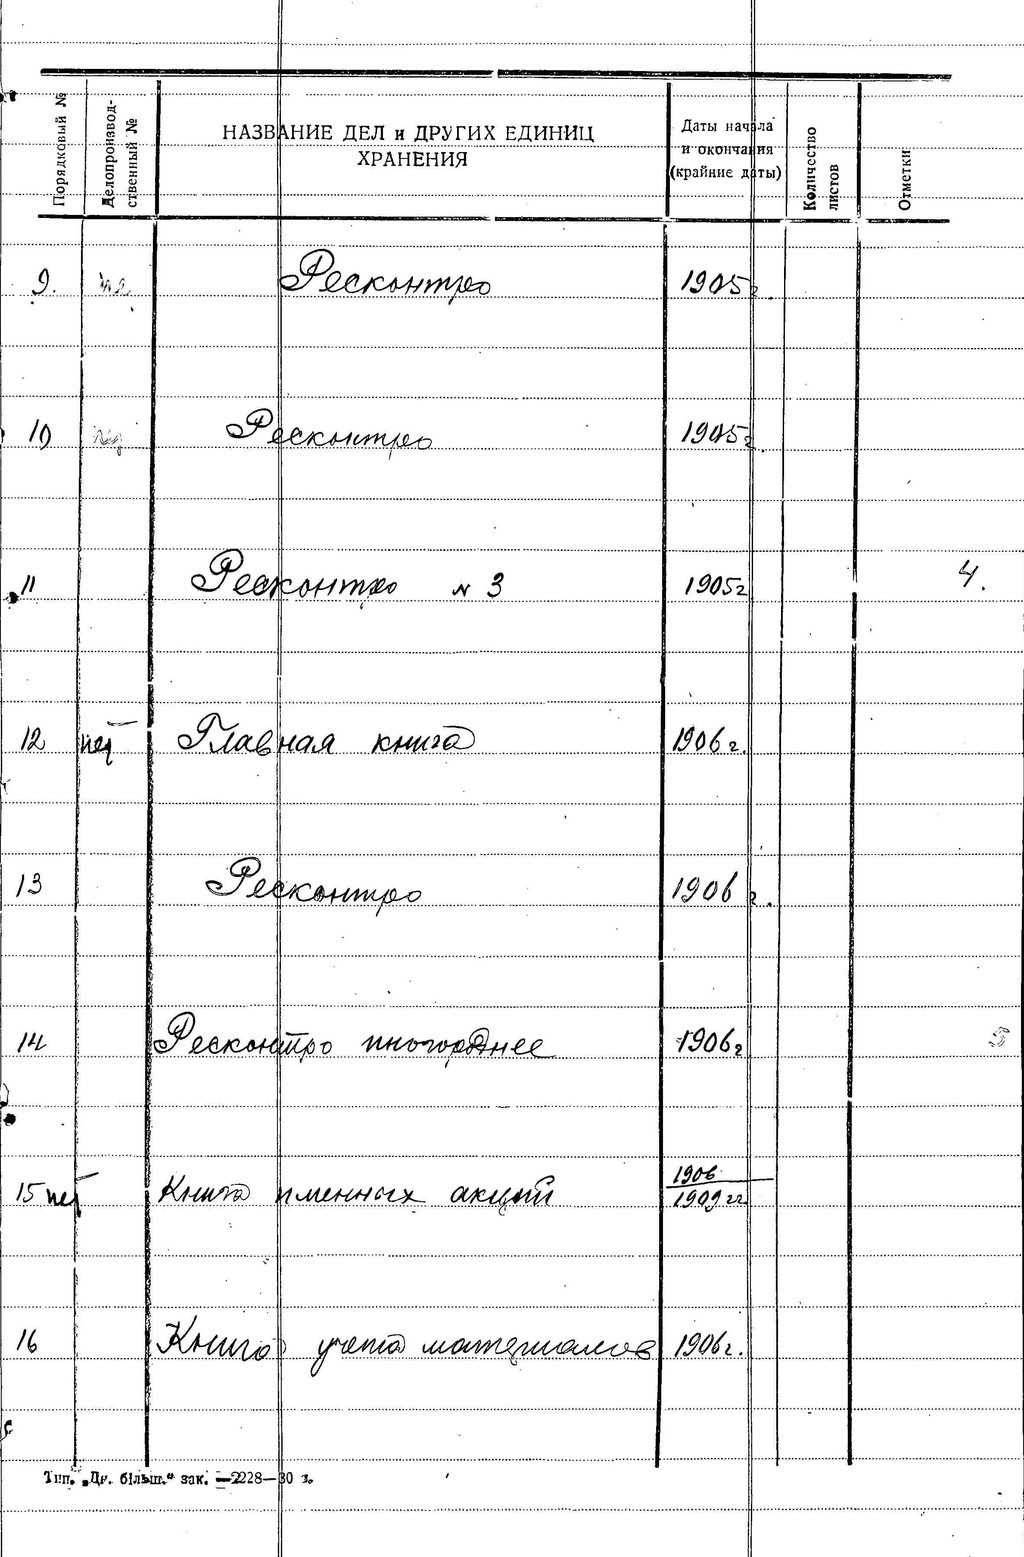 Порядковый №
Делопроизвод-
ственный №
НАЗВАНИЕ ДЕЛ и ДРУГИХ ЕДИНИЦ
ХРАНЕНИЯ
Даты начала
и окончания
(крайние даты)
Количество
листов
Отметки
9. Ресконтро 1905г.
10 Ресконтро 1905г.
11 Ресконтро № 3 1905г 4.
12 Главная книга 1906г.
13 Ресконтро 1906г.
14 Ресконтро иногороднее 1906г 5
15 Книга именных акций 1906
1909гг
16 Книга учета материалов 1906г.
Тип. „Дн. більш.“ зак. —2228—30 г.